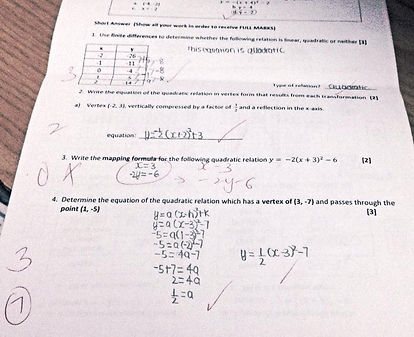 Short Answer (Show all your work in order to receive FULL MARKS)
1. Use finite differences to determine whether the following relation is linear, quadratic or neither [3]
x y
This equation is quadratic
-2 -26
-1 -11
0 -4
3
Type of relation? Quadratic
2. Write the equation of the quadratic relation in vertex form that results from each transformation [2]
a) Vertex (-2, 3), vertically compressed by a factor of 1/2 and a reflection in the x-axis.
2
equation: y=-1/2(x+2)²+3
3. Write the mapping formula for the following quadratic relation y = −2(x + 3)² − 6 [2]
0 x
x=3
-2y=-6
x-3
-2y-6
4. Determine the equation of the quadratic relation which has a vertex of (3, -7) and passes through the
point (1, -5) [3]
y=a(x-h)²+k
y=a(x-3)²-7
-5=a(1-3)²-7
-5=a(-2)²-7
-5=4a-7
-5+7=4a
2=4a
1/2=a
y=1/2(x-3)²-7
3
7